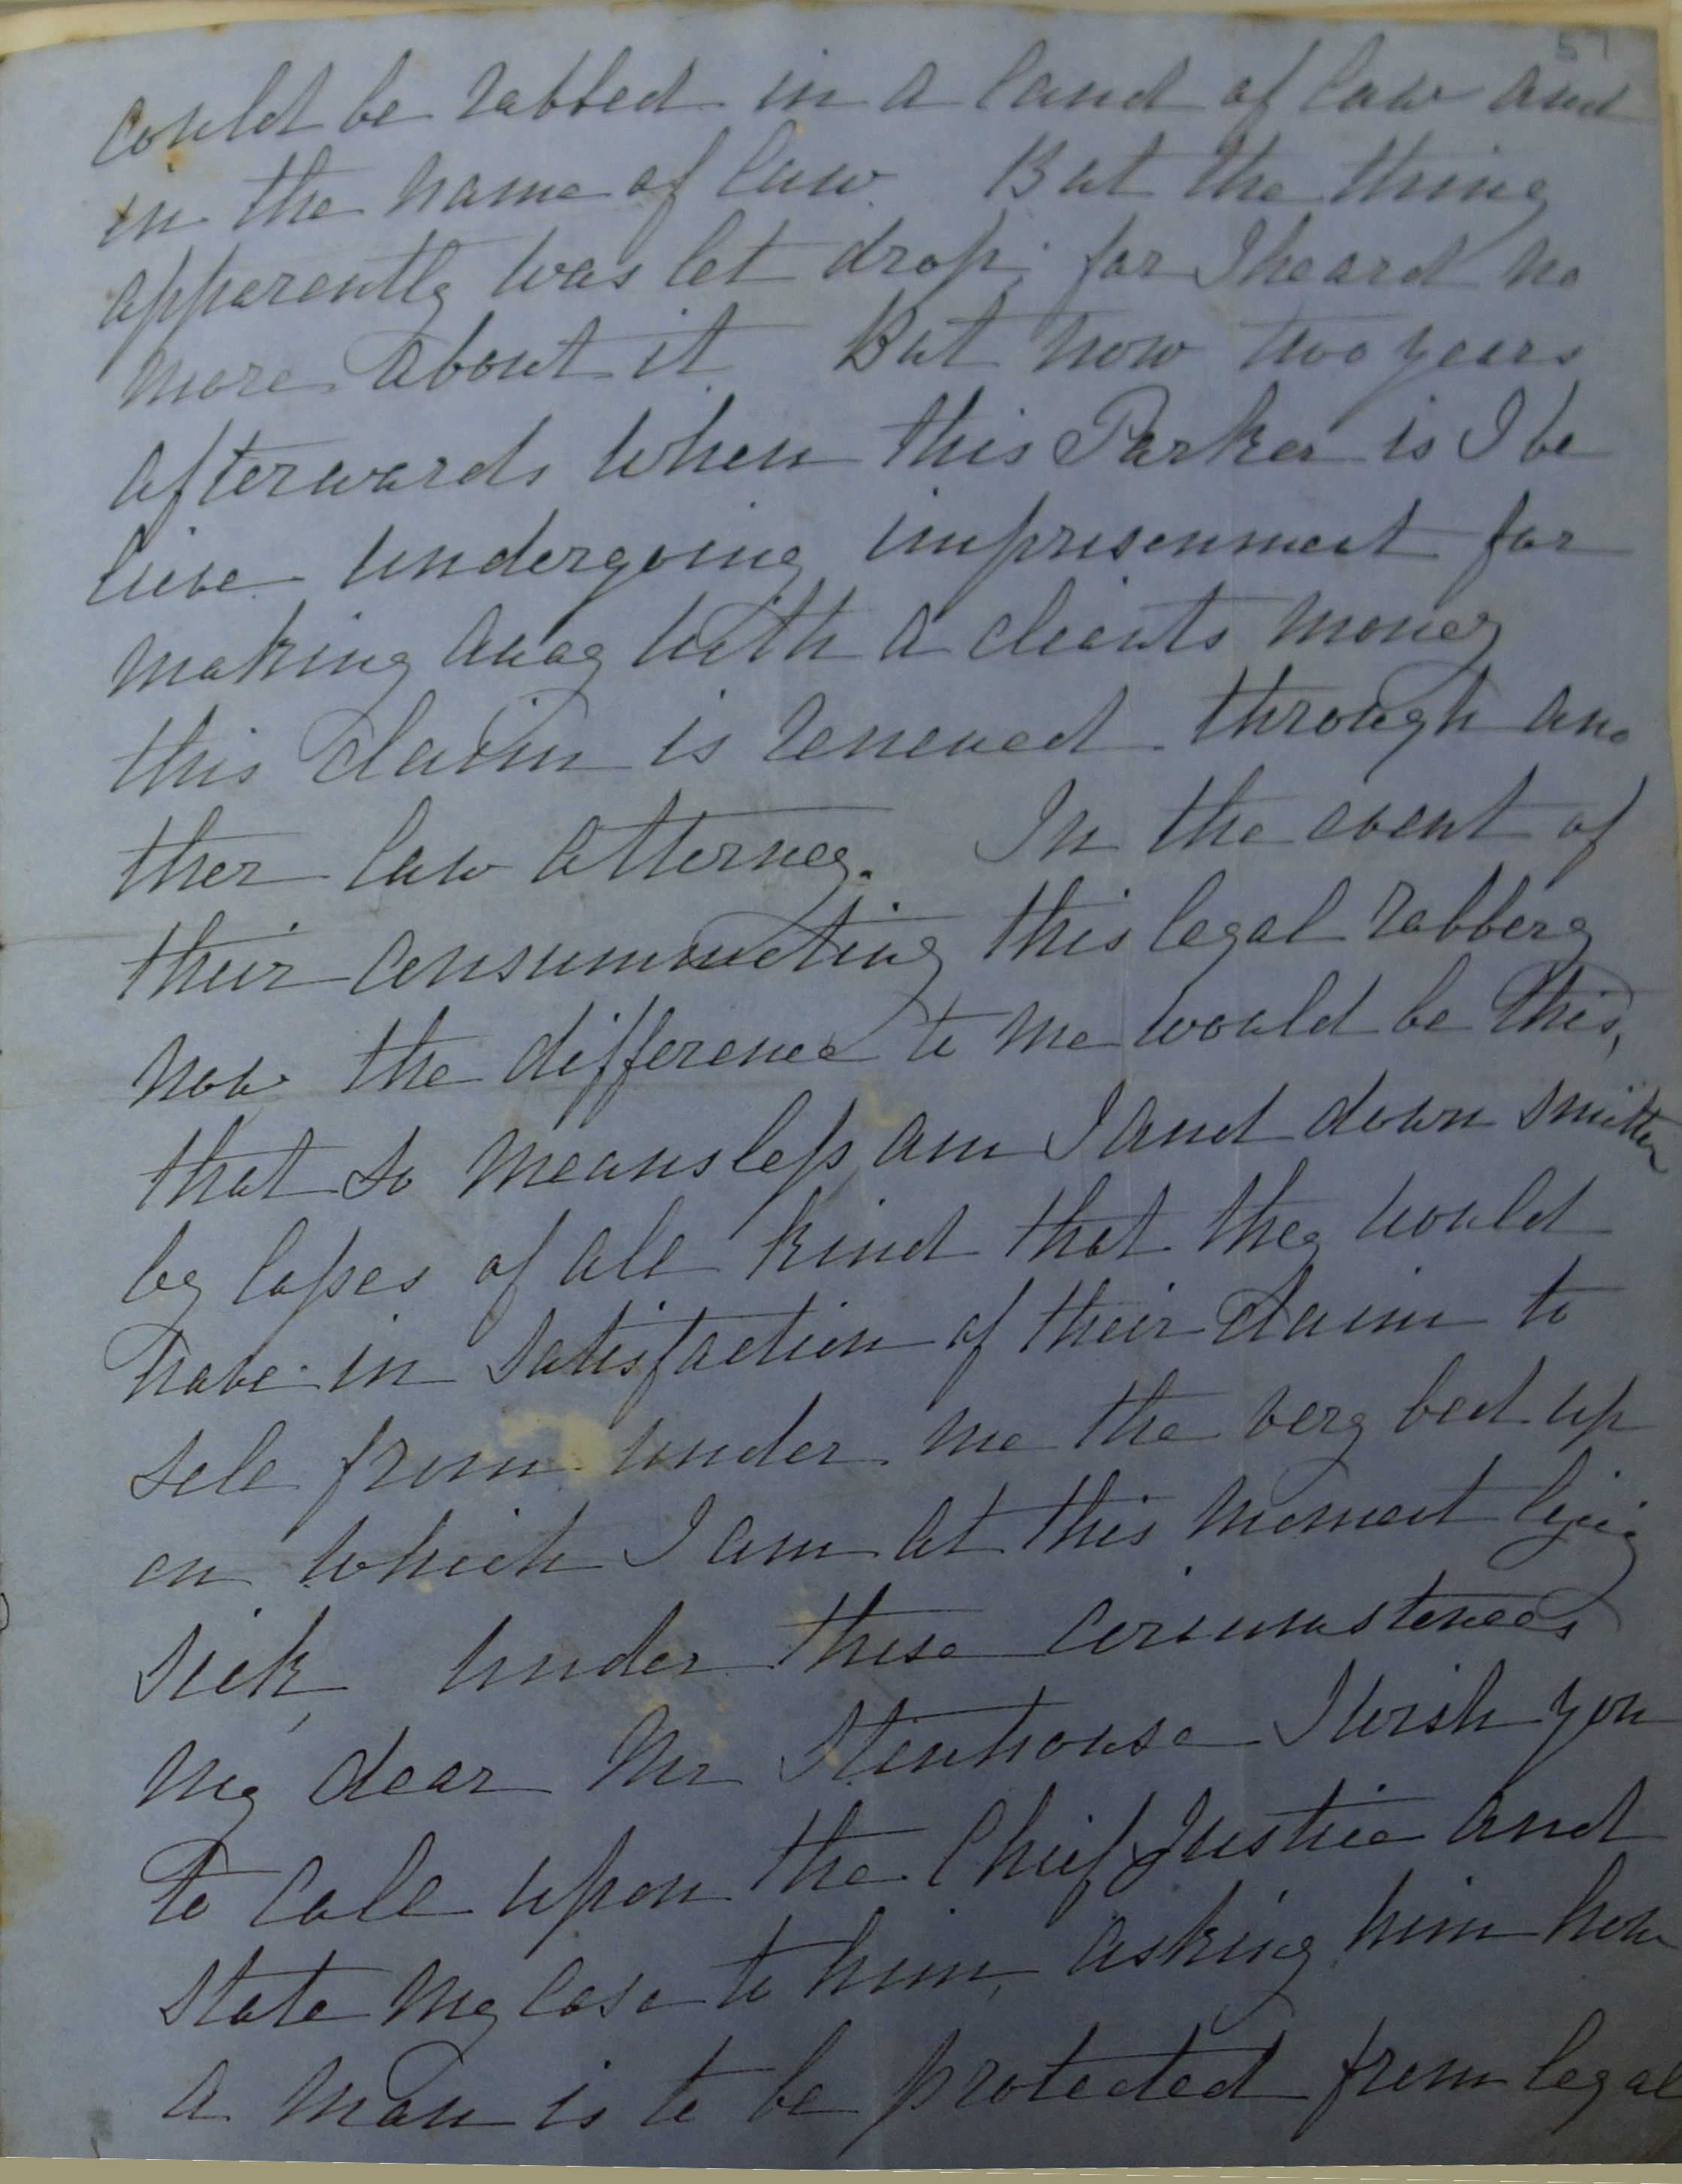 57
could be robbed in a land of law and
in the name of law. But the thing
apparently was let drop; for I heard no
more about it. But now two years
afterwards when this Parker is I be
lieve undergoing imprisonment for
making away with a clients money
this claim is renewed through ano
ther law attorney. In the event of
their consummating this legal robbery
now the difference to me would be this,
that so meansless am I and down smitten
by losses of all kind that they would
have in satisfaction of their claim to
sell from under me the very bed up
on which I am at this moment lying
sick, under these circumstances
my dear Mr Stenhouse I wish you
to call upon the Chief Justice and
state my case to him, asking him how
a man is to be protected from legal